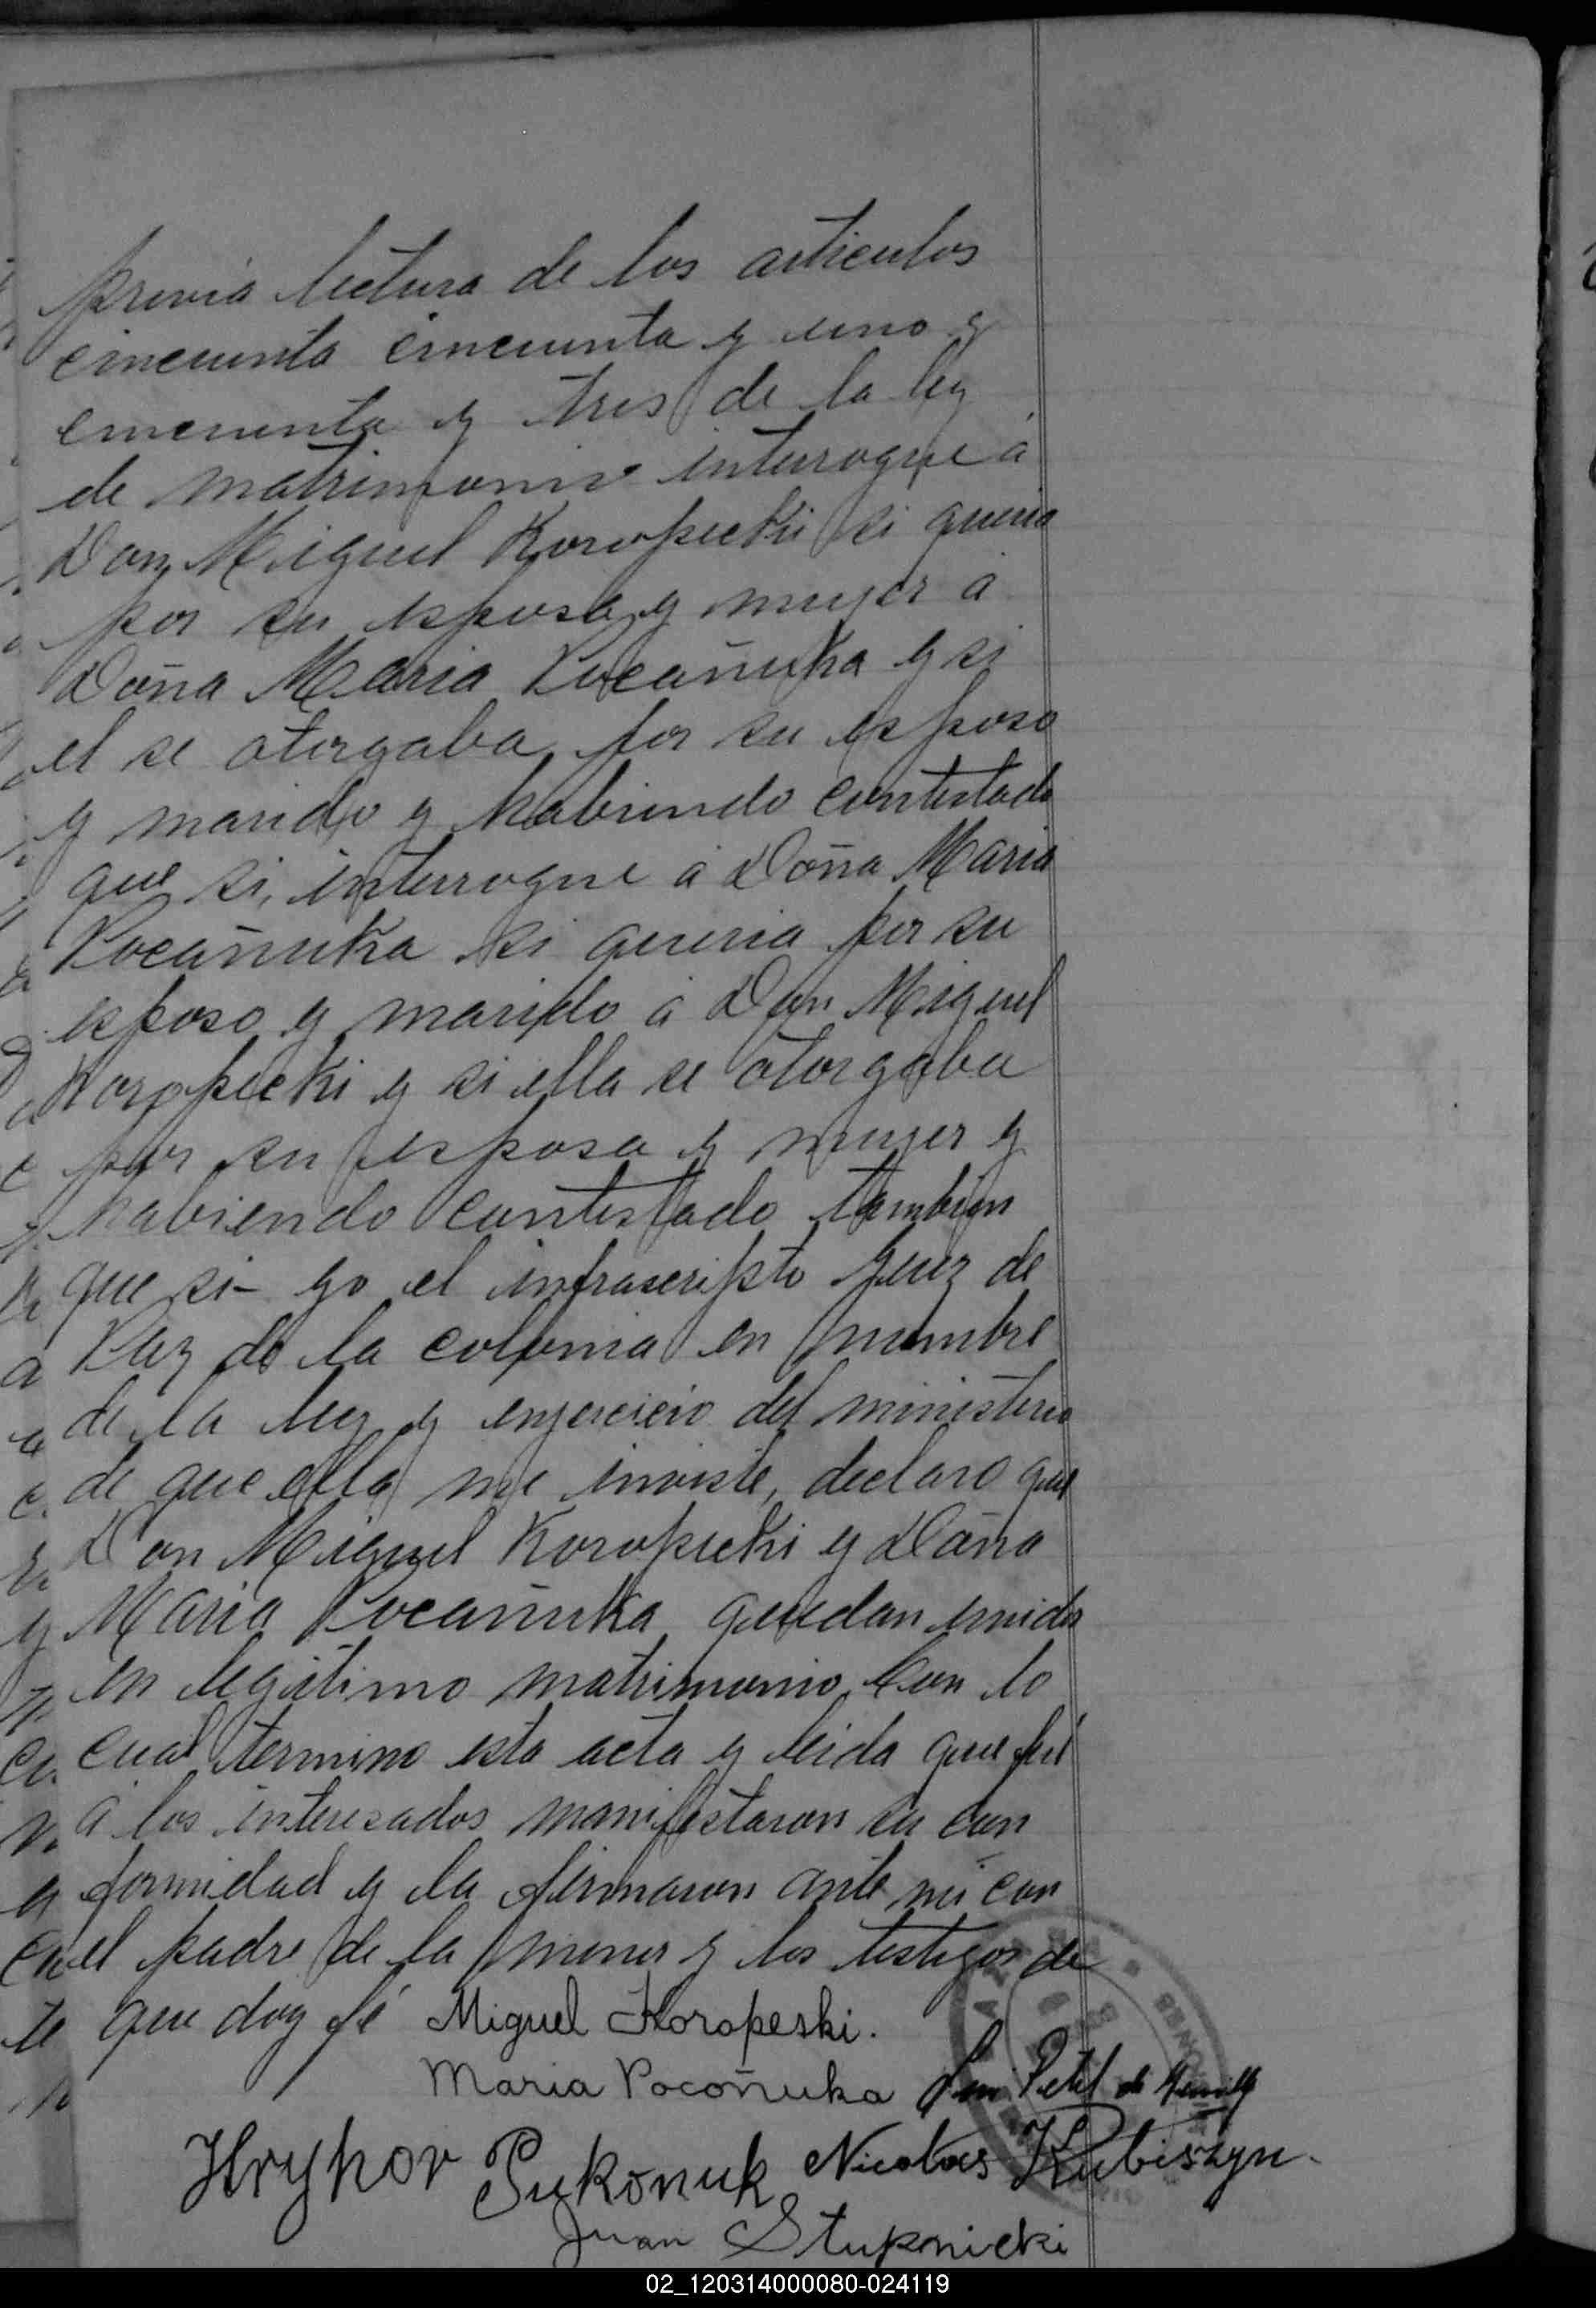 previa lectura de los articulos
cincuenta cincuenta y uno y
cincuenta y tres de la ley
de matrimonio interrogue á
Don Miguel Koropecki si queria
por su esposa y mujer á
Doña Maria Pocañuka y si
el se otorgaba por su esposo
y marido y habiendo contestado
que si, interrogue á Doña Maria
Pocañuka si queria por su
esposo y marido á Don Miguel
Koropecki y si ella se otorgaba
por su esposa y mujer y
habiendo contestado tambien
que si- yo el infrascripto Juez de
Paz de la colonia en nombre
de la ley y enjercicio del ministerio
de que ella me inviste, declaro que
Don Miguel Koropecki y Doña
Maria Pocañuka quedan unidos
en legitimo matrimonio. Con lo
cual termino esta acta y leida que fué
á los interesados manifestaron su con
formidad y la firmaron ante mi con
el padre de la menor y los testigos de
que doy fé Miguel Koropeski.
Maria Pocoñuka Petit de
Hryhor Pukonuk Nicolas Kubiszyn.
Juan Stupnicki
02_120314000080-024119